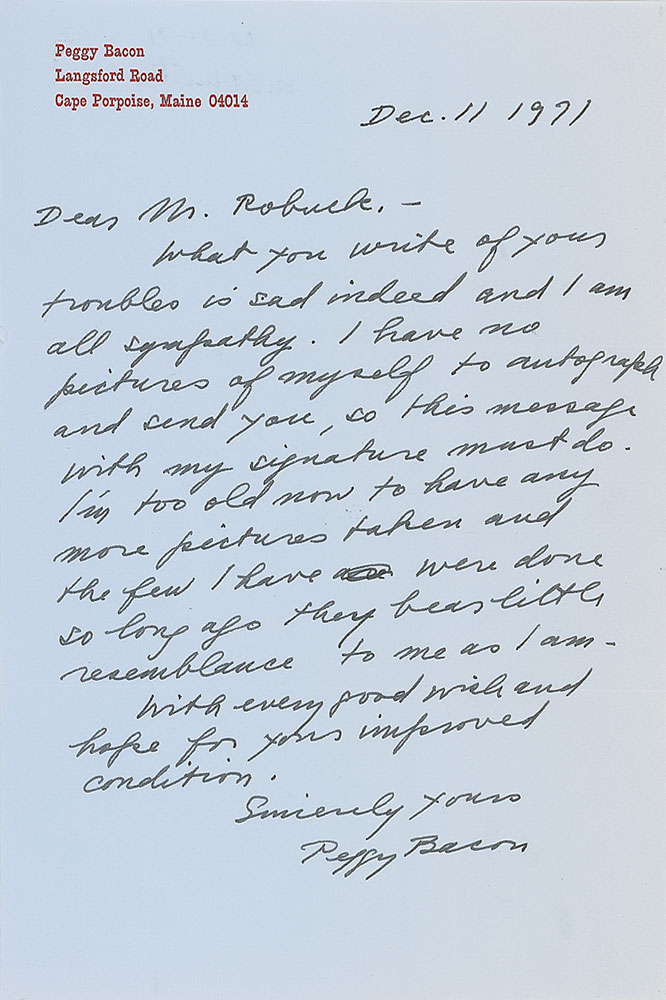 Peggy Bacon
Langsford Road
Cape Porpoise, Maine 04014
Dec. 11 1971
Dear Mr. Robuck. –
What you write of your
troubles is sad indeed and I am
all sympathy. I have no
pictures of myself to autograph
and send you, so this message
with my signature must do.
I'm too old now to have any
more pictures taken and
the few I have were done
so long ago they bear little
resemblance to me as I am –
With every good wish and
hope for your improved
condition.
Sincerely yours
Peggy Bacon